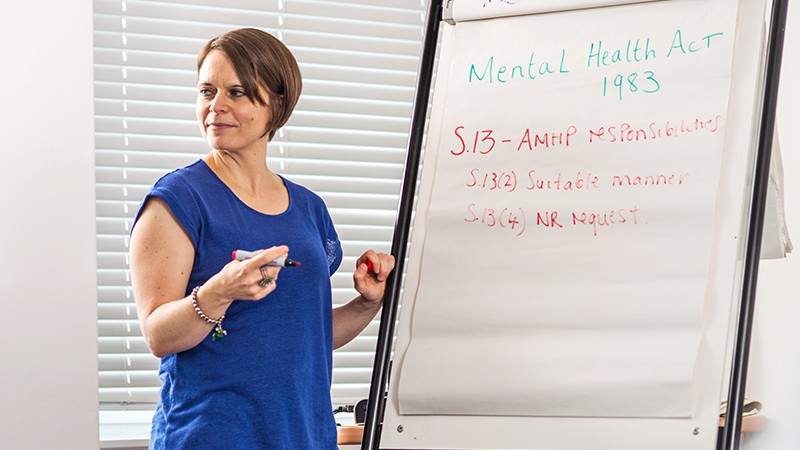 Mental Health Act
1983
S.13 - AMHP responsibilities
S.13(2) Suitable manner
S.13(4) NR request.